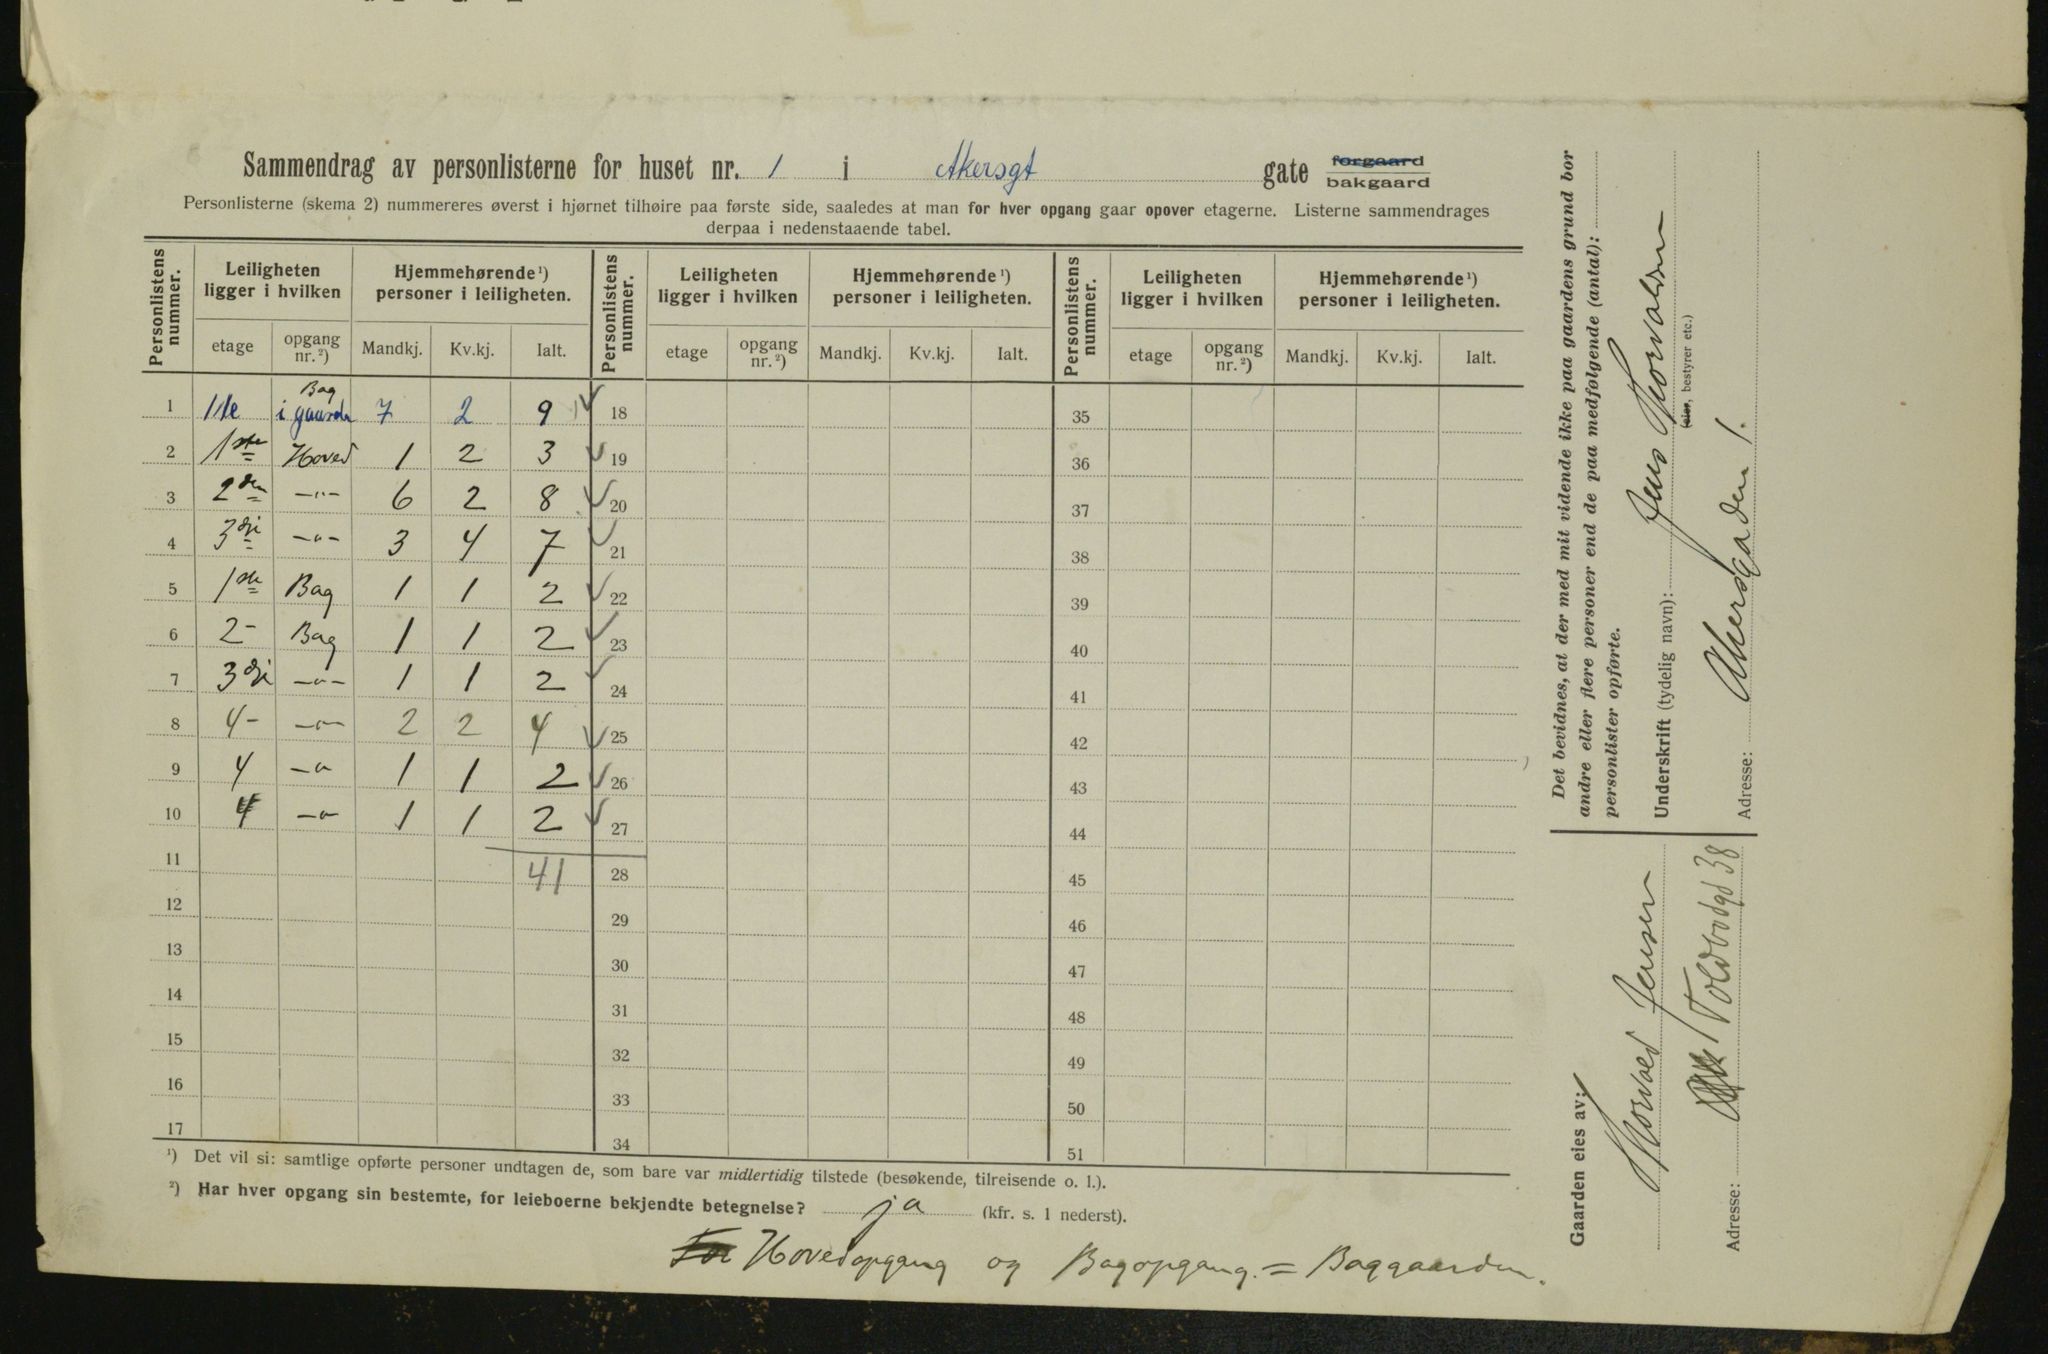 Sammendrag av personlisterne for huset nr. 1 i Akersgt gate forgaard bakgaard
Personlisterne (skema 2) nummereres øverst i hjørnet tilhøire paa første side, saaledes at man for hver opgang gaar opover etagerne. Listerne sammendrages
derpaa i nedenstaaende tabel.
Personlistens nummer. Leiligheten ligger i hvilken Hjemmehørende ¹) personer i leiligheten. Personlistens nummer. Leiligheten ligger i hvilken Hjemmehørende ¹) personer i leiligheten. Personlistens nummer. Leiligheten ligger i hvilken Hjemmehørende ¹) personer i leiligheten.
etage opgang nr. ²) Mandkj. Kv.kj. Ialt. etage opgang nr. ²) Mandkj. Kv.kj. Ialt. etage opgang nr. ²) Mandkj. Kv.kj. Ialt.
1 1ste Bag i gaarden 7 2 9 18 35
2 1ste Hoved 1 2 3 19 36
3 2den -"- 6 2 8 20 37
4 3die -"- 3 4 7 21 38
5 1ste Bag 1 1 2 22 39
6 2- Bag 1 1 2 23 40
7 3die -"- 1 1 2 24 41
8 4- -"- 2 2 4 25 42
9 4 -" 1 1 2 26 43
10 4 -"- 1 1 2 27 44
11 41 28 45
12 29 46
13 30 47
14 31 48
15 32 49
16 33 50
17 34 51
¹) Det vil si: samtlige opførte personer undtagen de, som bare var midlertidig tilstede (besøkende, tilreisende o. l.).
²) Har hver opgang sin bestemte, for leieboerne bekjendte betegnelse? ja (kfr. s. 1 nederst).
Hovedopgang og Bagopgang. = Baggaarden.
Det bevidnes, at der med mit vidende ikke paa gaardens grund bor
andre eller flere personer end de paa medfølgende (antal):
personlister opførte.
Underskrift (tydelig navn): Jens Thorvaldsen
(eier, bestyrer etc.)
Adresse: Akersgaden 1.
Gaarden eies av:
Thorvald Jensen
Adresse: Toldbodgd 38